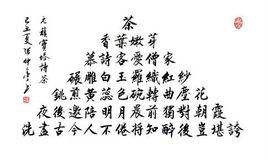 茶
香葉嫩芽
慕詩客愛僧家
碾雕白玉羅織紅紗
銚煎黃蕊色碗轉曲塵花
夜後邀陪明月晨前獨對朝霞
洗盡古今人不倦將知醉後豈堪誇
元稹寶塔詩茶
己丑夏